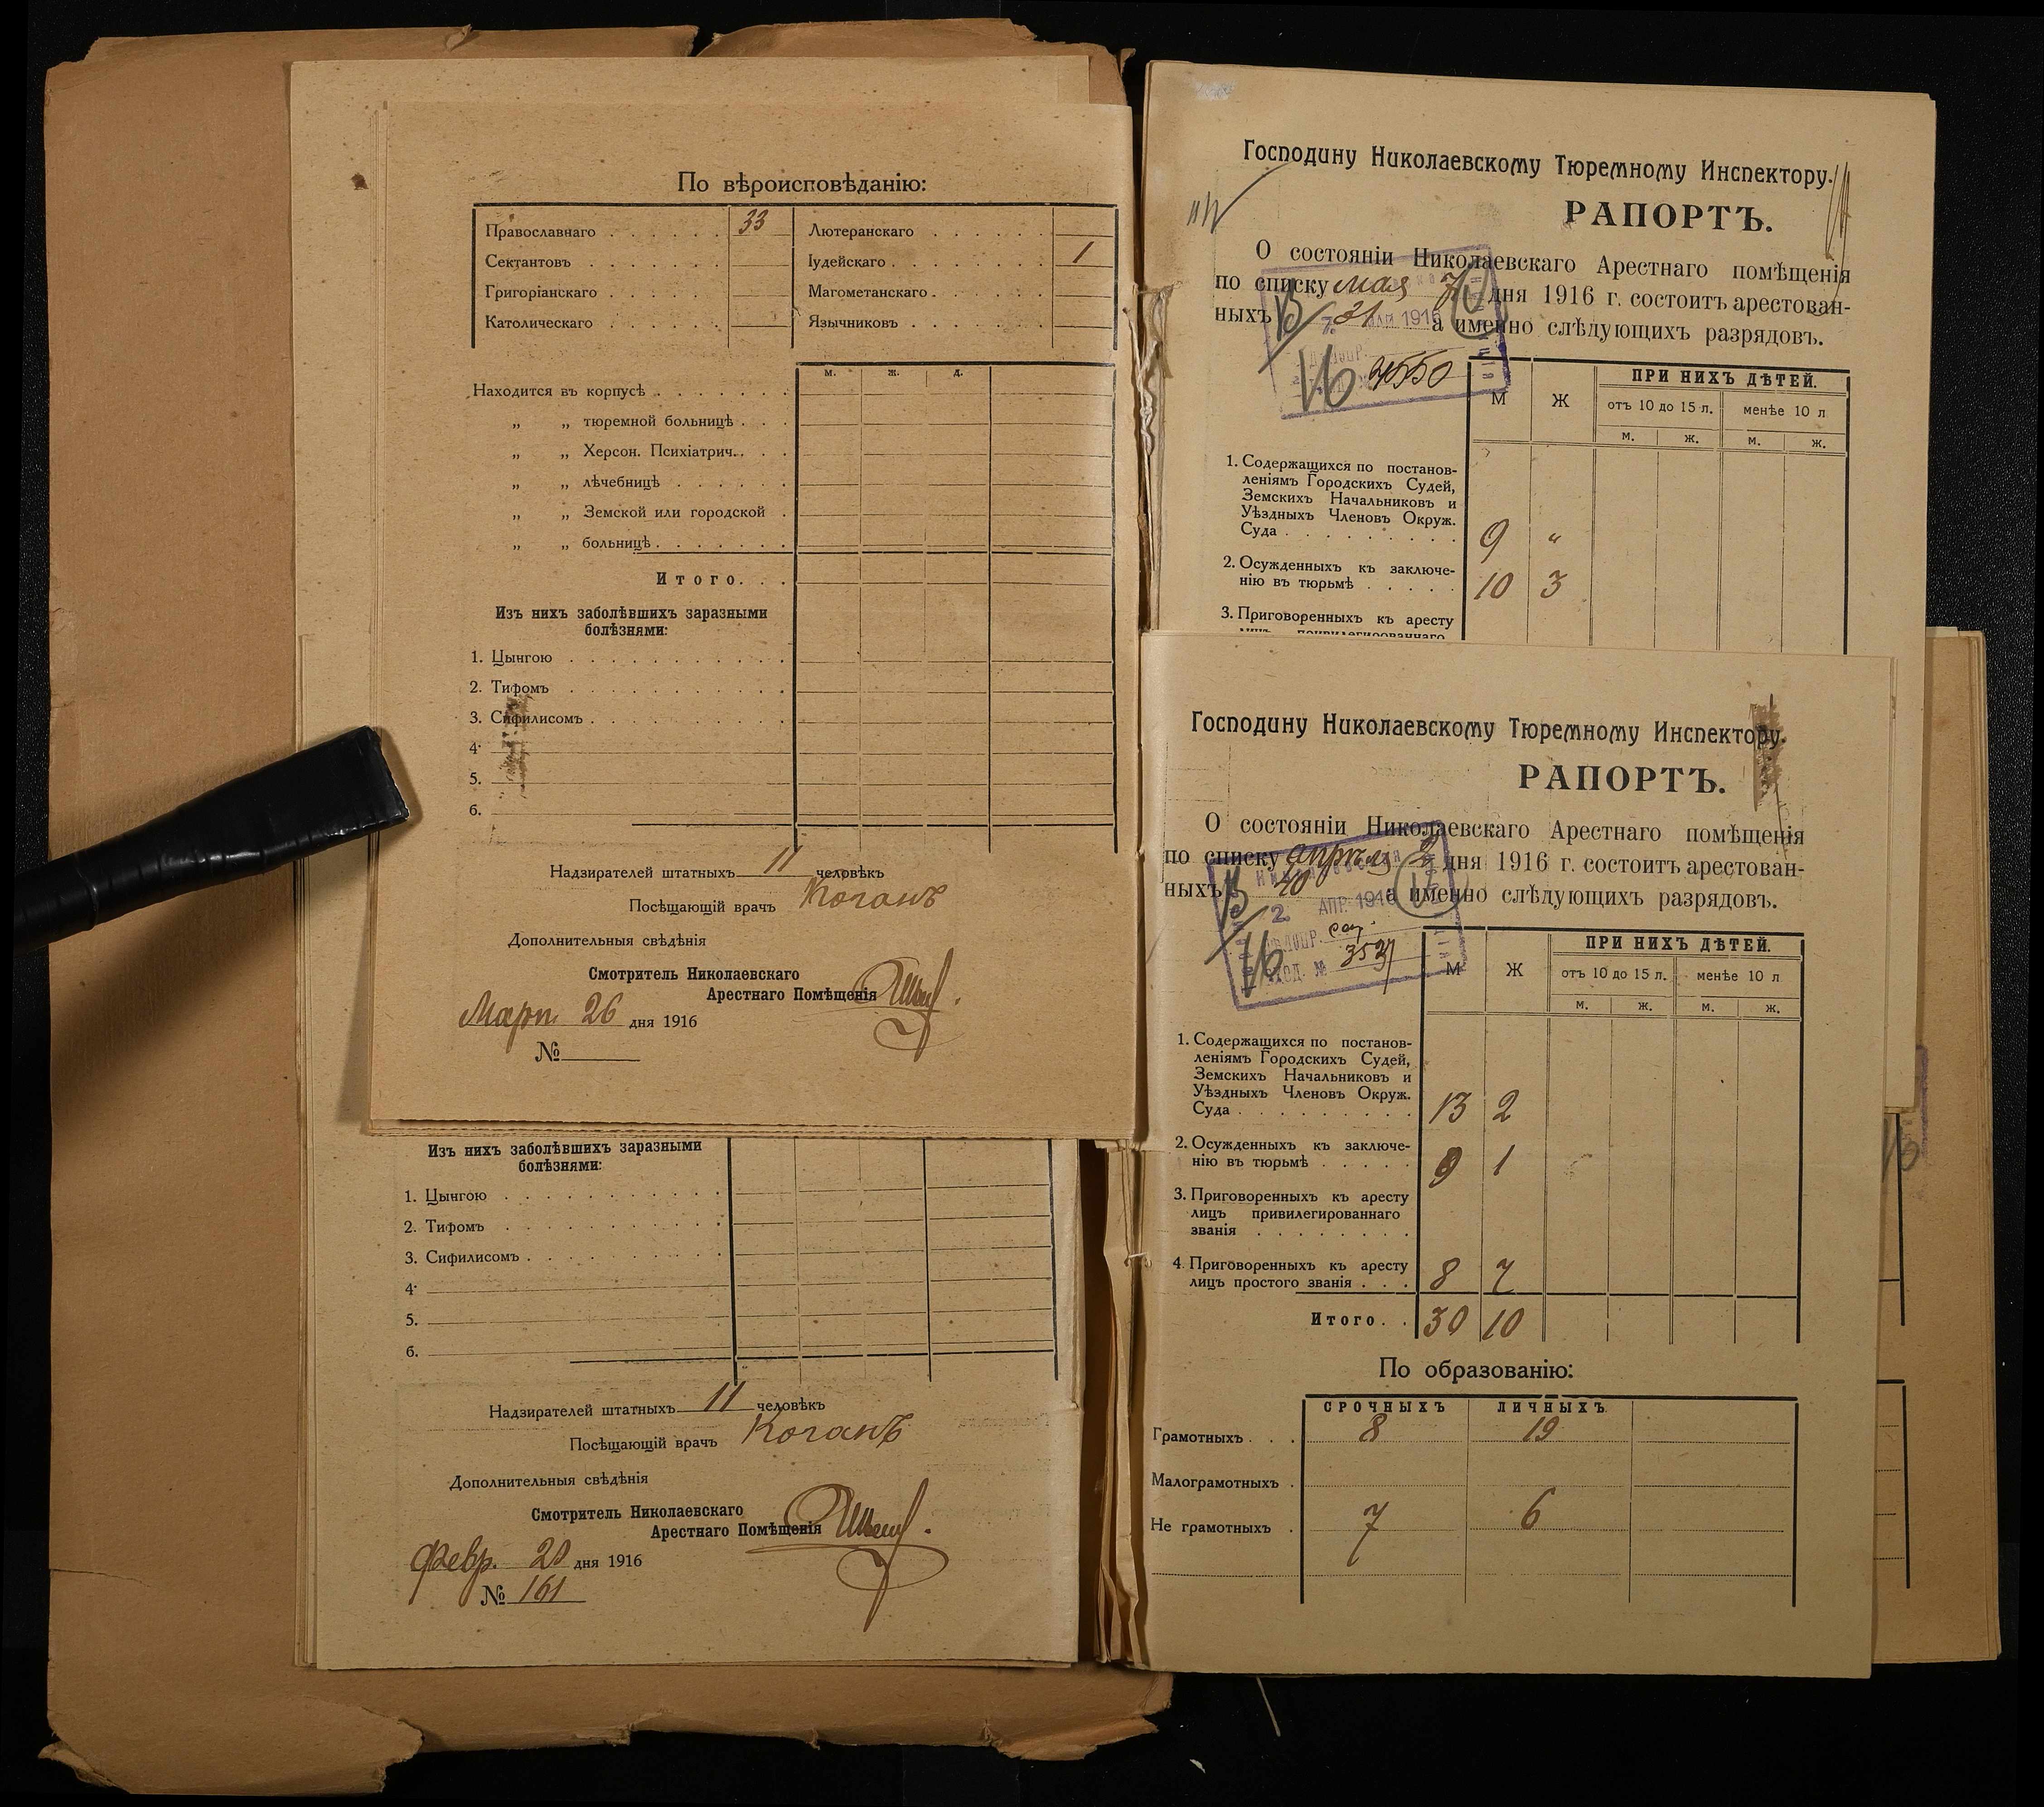 По вѣроисповѣданію:
Православнаго . . . . . . 33 Лютеранскаго . . . . . .
Сектантовъ . . . . . . . Іудейскаго . . . . . . . . 1
Григоріанскаго . . . . . Магометанскаго . . . . . .
Католическаго . . . . . . Язычниковъ . . . . . . .
м. ж. д.
Находится въ корпусѣ . . . . . . .
„ „ тюремной больницѣ . . .
„ „ Херсон. Психіатрич. . . .
„ „ лѣчебницѣ . . . . . .
„ „ Земской или городской .
„ „ больницѣ . . . . . . .
Итого. . .
Изъ нихъ заболѣвшихъ заразными
болѣзнями:
1. Цынгою . . . . . . . . . . .
2. Тифомъ . . . . . . . . . . .
3. Сифилисомъ . . . . . . . . . .
4.
5.
6.
Надзирателей штатныхъ 11 человѣкъ
Посѣщающій врачъ Коганъ
Дополнительныя свѣдѣнія
Смотритель Николаевскаго
Арестнаго Помѣщенія
Март. 26 дня 1916
№
Изъ нихъ заболѣвшихъ заразными
болѣзнями:
1. Цынгою . . . . . . . . . . .
2. Тифомъ . . . . . . . . . . .
3. Сифилисомъ . . . . . . . . . .
4.
5.
6.
Надзирателей штатныхъ 11 человѣкъ
Посѣщающій врачъ Коганъ
Дополнительныя свѣдѣнія
Смотритель Николаевскаго
Арестнаго Помѣщенія
Февр. дня 1916
№ 161
Господину Николаевскому Тюремному Инспектору.
РАПОРТЪ.
О состояніи Николаевскаго Арестнаго помѣщенія
по списку мая 7 дня 1916 г. состоитъ арестован-
ныхъ 31 а именно слѣдующихъ разрядовъ.
7. 1916
4550
М Ж ПРИ НИХЪ ДѢТЕЙ.
отъ 10 до 15 л. менѣе 10 л
м. ж. м. ж.
1. Содержащихся по постанов-
леніямъ Городскихъ Судей,
Земскихъ Начальниковъ и
Уѣздныхъ Членовъ Окруж.
Суда . . . . . . . . . . 9 „
2. Осужденныхъ къ заключе-
нію въ тюрьмѣ . . . . . 10 3
3. Приговоренныхъ къ аресту
лицъ привилегированнаго
Господину Николаевскому Тюремному Инспектору.
РАПОРТЪ.
О состояніи Николаевскаго Арестнаго помѣщенія
по списку апрѣля 2 дня 1916 г. состоитъ арестован-
ныхъ 40 а именно слѣдующихъ разрядовъ.
2. АПР. 1916
ВХОД. №
М Ж ПРИ НИХЪ ДѢТЕЙ.
отъ 10 до 15 л. менѣе 10 л
м. ж. м. ж.
1. Содержащихся по постанов-
леніямъ Городскихъ Судей,
Земскихъ Начальниковъ и
Уѣздныхъ Членовъ Окруж.
Суда . . . . . . . . . . 13 2
2. Осужденныхъ къ заключе-
нію въ тюрьмѣ . . . . . 9 1
3. Приговоренныхъ къ аресту
лицъ привилегированнаго
званія . . . . . . . .
4. Приговоренныхъ къ аресту
лицъ простого званія . . . 8 7
Итого. . 30 10
По образованію:
СРОЧНЫХЪ ЛИЧНЫХЪ
Грамотныхъ . . . 8 19
Малограмотныхъ .
Не грамотныхъ . 7 6